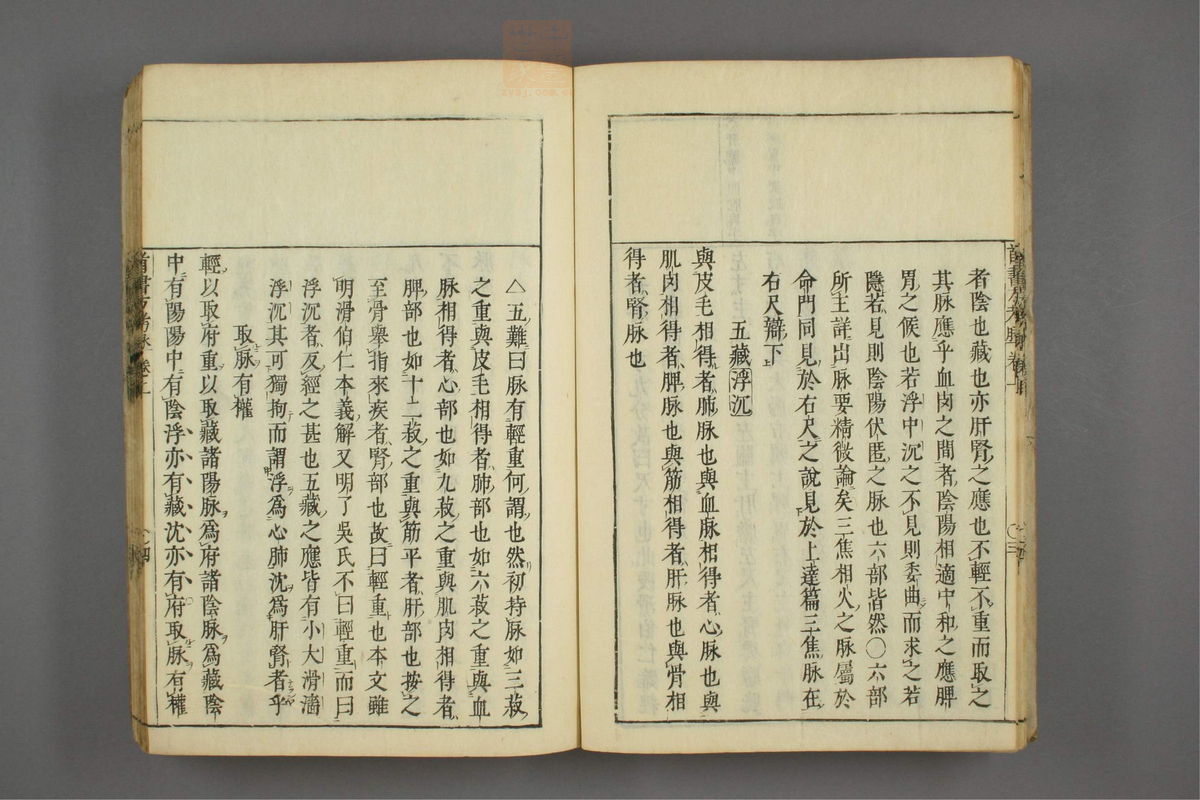 者陰也藏也亦肝腎之應也不輕不重而取之
其脉應乎血肉之間者陰陽相適中和之應脾
胃之候也若浮中沉之不見則委曲而求之若
隱若見則陰陽伏匿之脉也六部皆然〇六部
所主詳出脉要精微論矣三焦相火之脉屬於
命門同見於右尺之說見於上達篇三焦脉在
右尺辯下
五藏浮沉
與皮毛相得者肺脉也與血脉相得者心脉也與
肌肉相得者脾脉也與筋相得者肝脉也與骨相
得者腎脉也
△五難曰脉有輕重何謂也然初持脉如三菽
之重與皮毛相得者肺部也如六菽之重與血
脉相得者心部也如九菽之重與肌肉相得者
脾部也如十二菽之重與筋平者肝部也按之
至骨舉指來疾者腎部也故曰輕重也本文雖
明滑伯仁本義解又明了吳氏不曰輕重而曰
浮沉者反經之甚也五藏之應皆有小大滑濇
浮沉其可獨拘而謂浮爲心肺沈爲肝腎者乎
取脉有權
輕以取府重以取藏諸陽脉爲府諸陰脉爲藏陰
中有陽陽中有陰浮亦有藏沈亦有府取脉有權